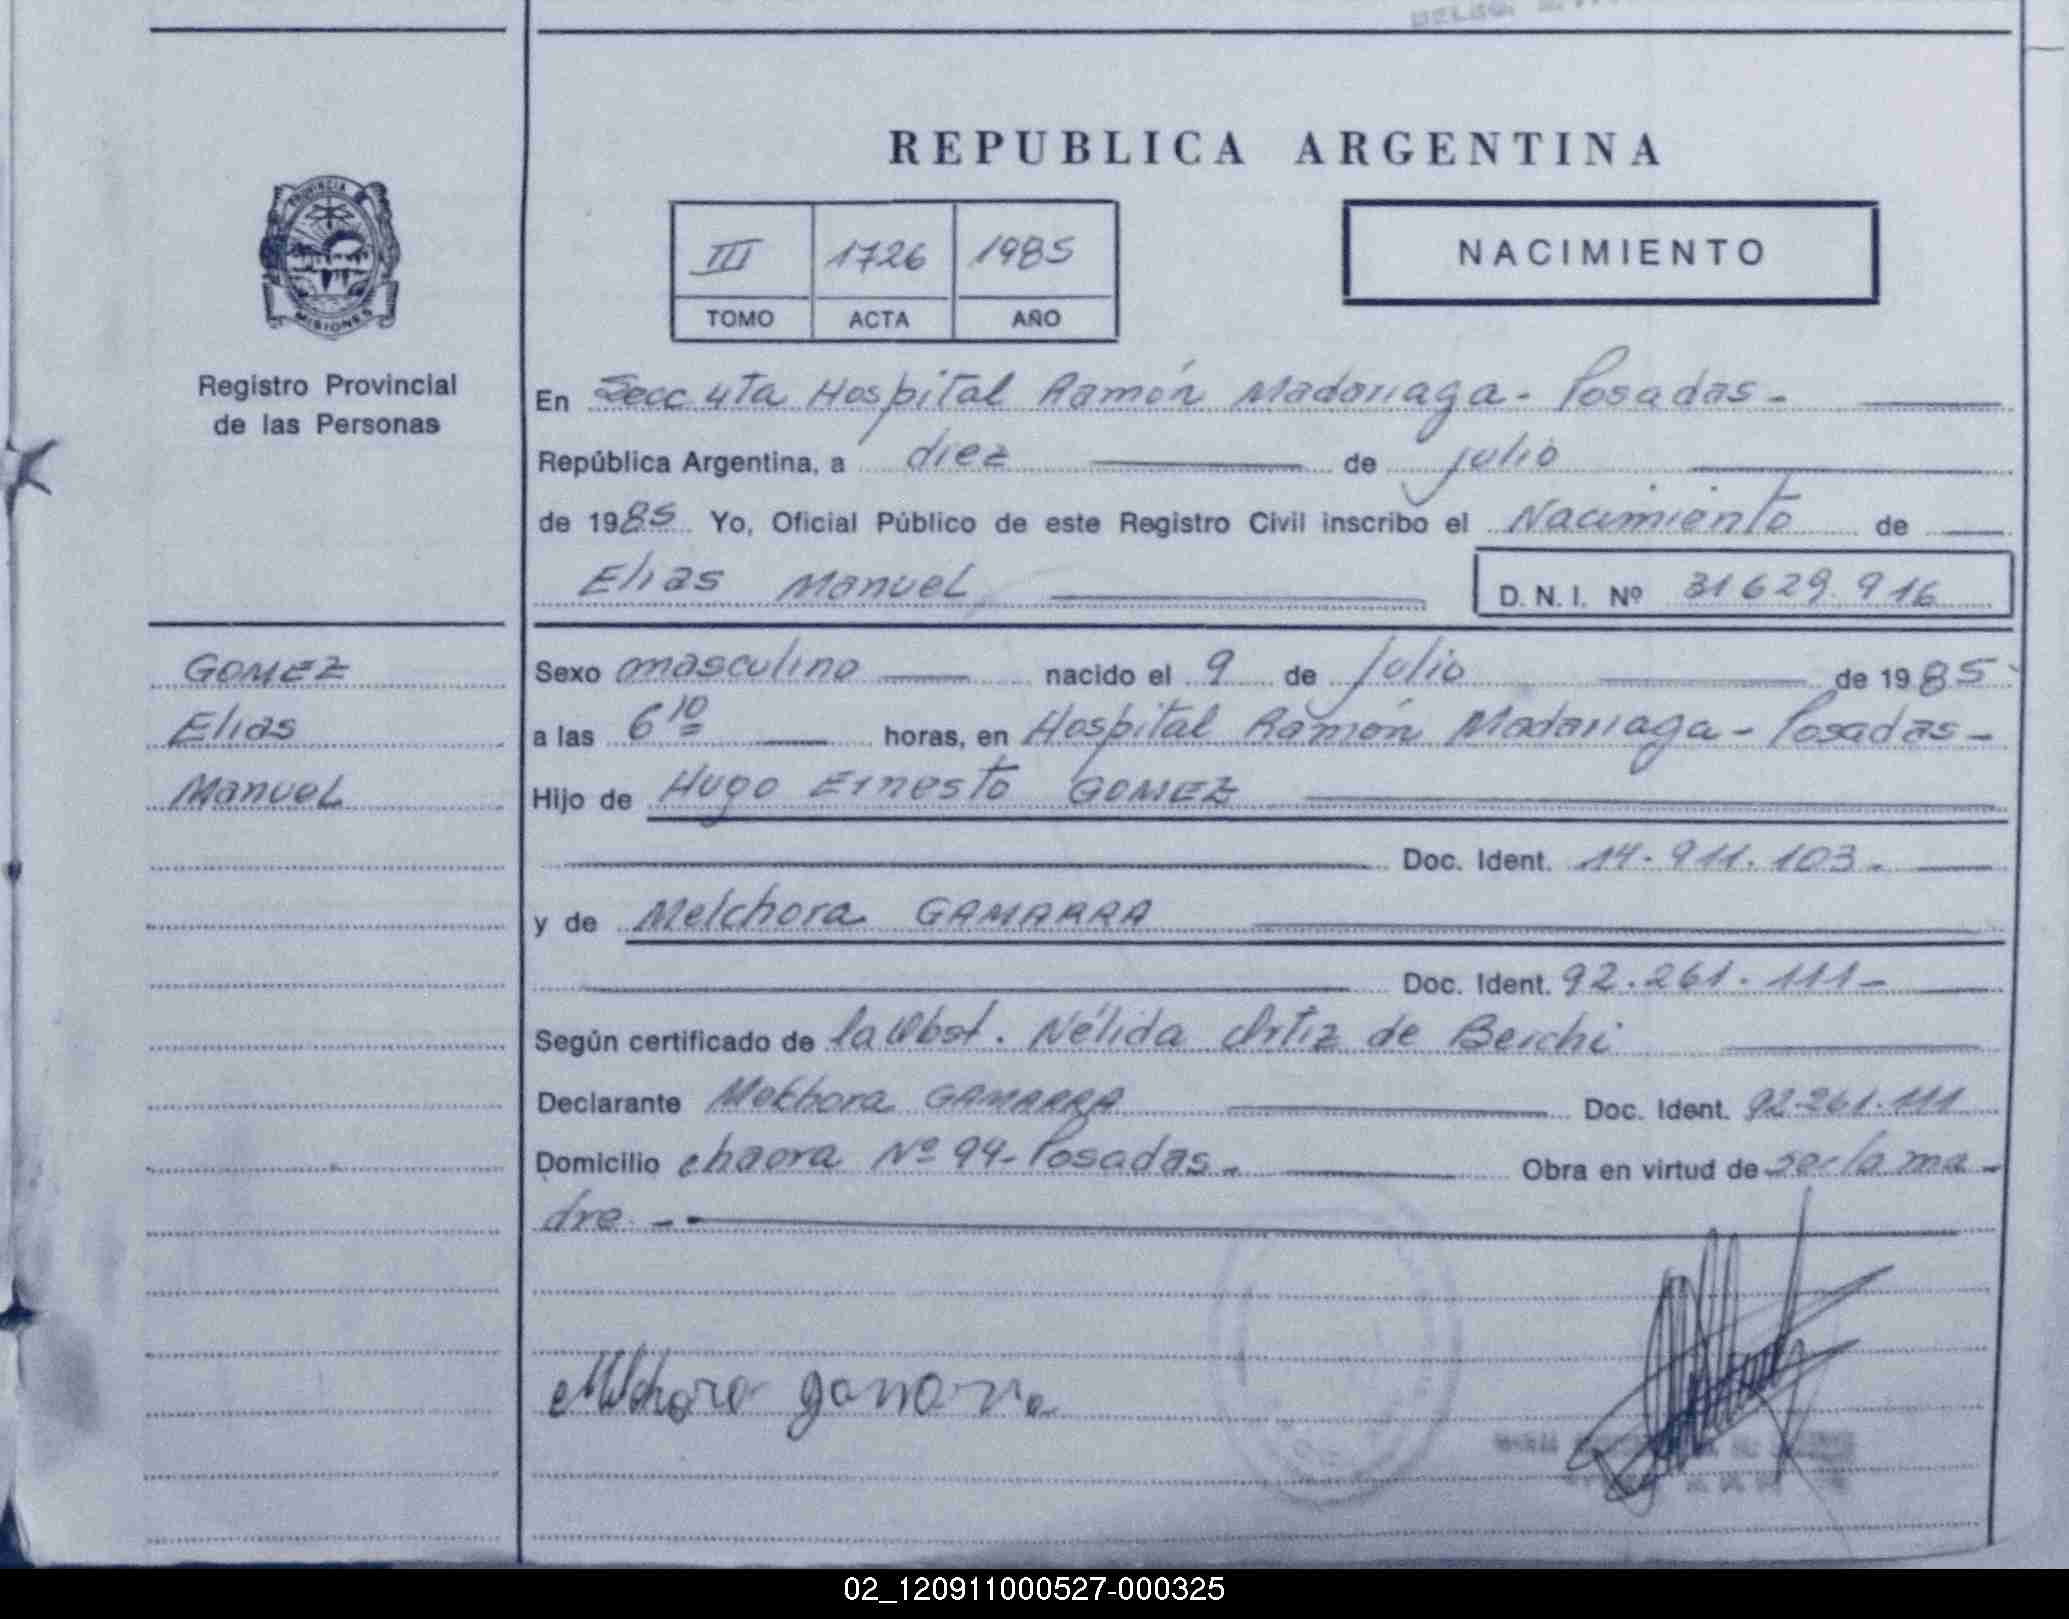 REPUBLICA ARGENTINA
PROVINCIA
MISIONES
Registro Provincial
de las Personas
III 1726 1985
TOMO ACTA AÑO
NACIMIENTO
En Secc 4ta Hospital Ramón Madariaga - Posadas -
República Argentina, a diez de julio
de 1985 Yo, Oficial Público de este Registro Civil inscribo el Nacimiento de
Elias Manuel
D. N. I. Nº 31629.916
GOMEZ
Elias
Manuel
Sexo masculino nacido el 9 de julio de 1985
a las 6 10 horas, en Hospital Ramón Madariaga - Posadas -
Hijo de Hugo Ernesto GOMEZ
Doc. Ident. 14.911.103.
y de Melchora GAMARRA
Doc. Ident. 92.261.111-
Según certificado de la Obst. Nélida Ortiz de Beichi
Declarante Melchora GAMARRA Doc. Ident. 92.261.111
Domicilio chacra Nº 94 - Posadas - Obra en virtud de ser la ma-
dre -
Melchora gamarra
02_120911000527-000325